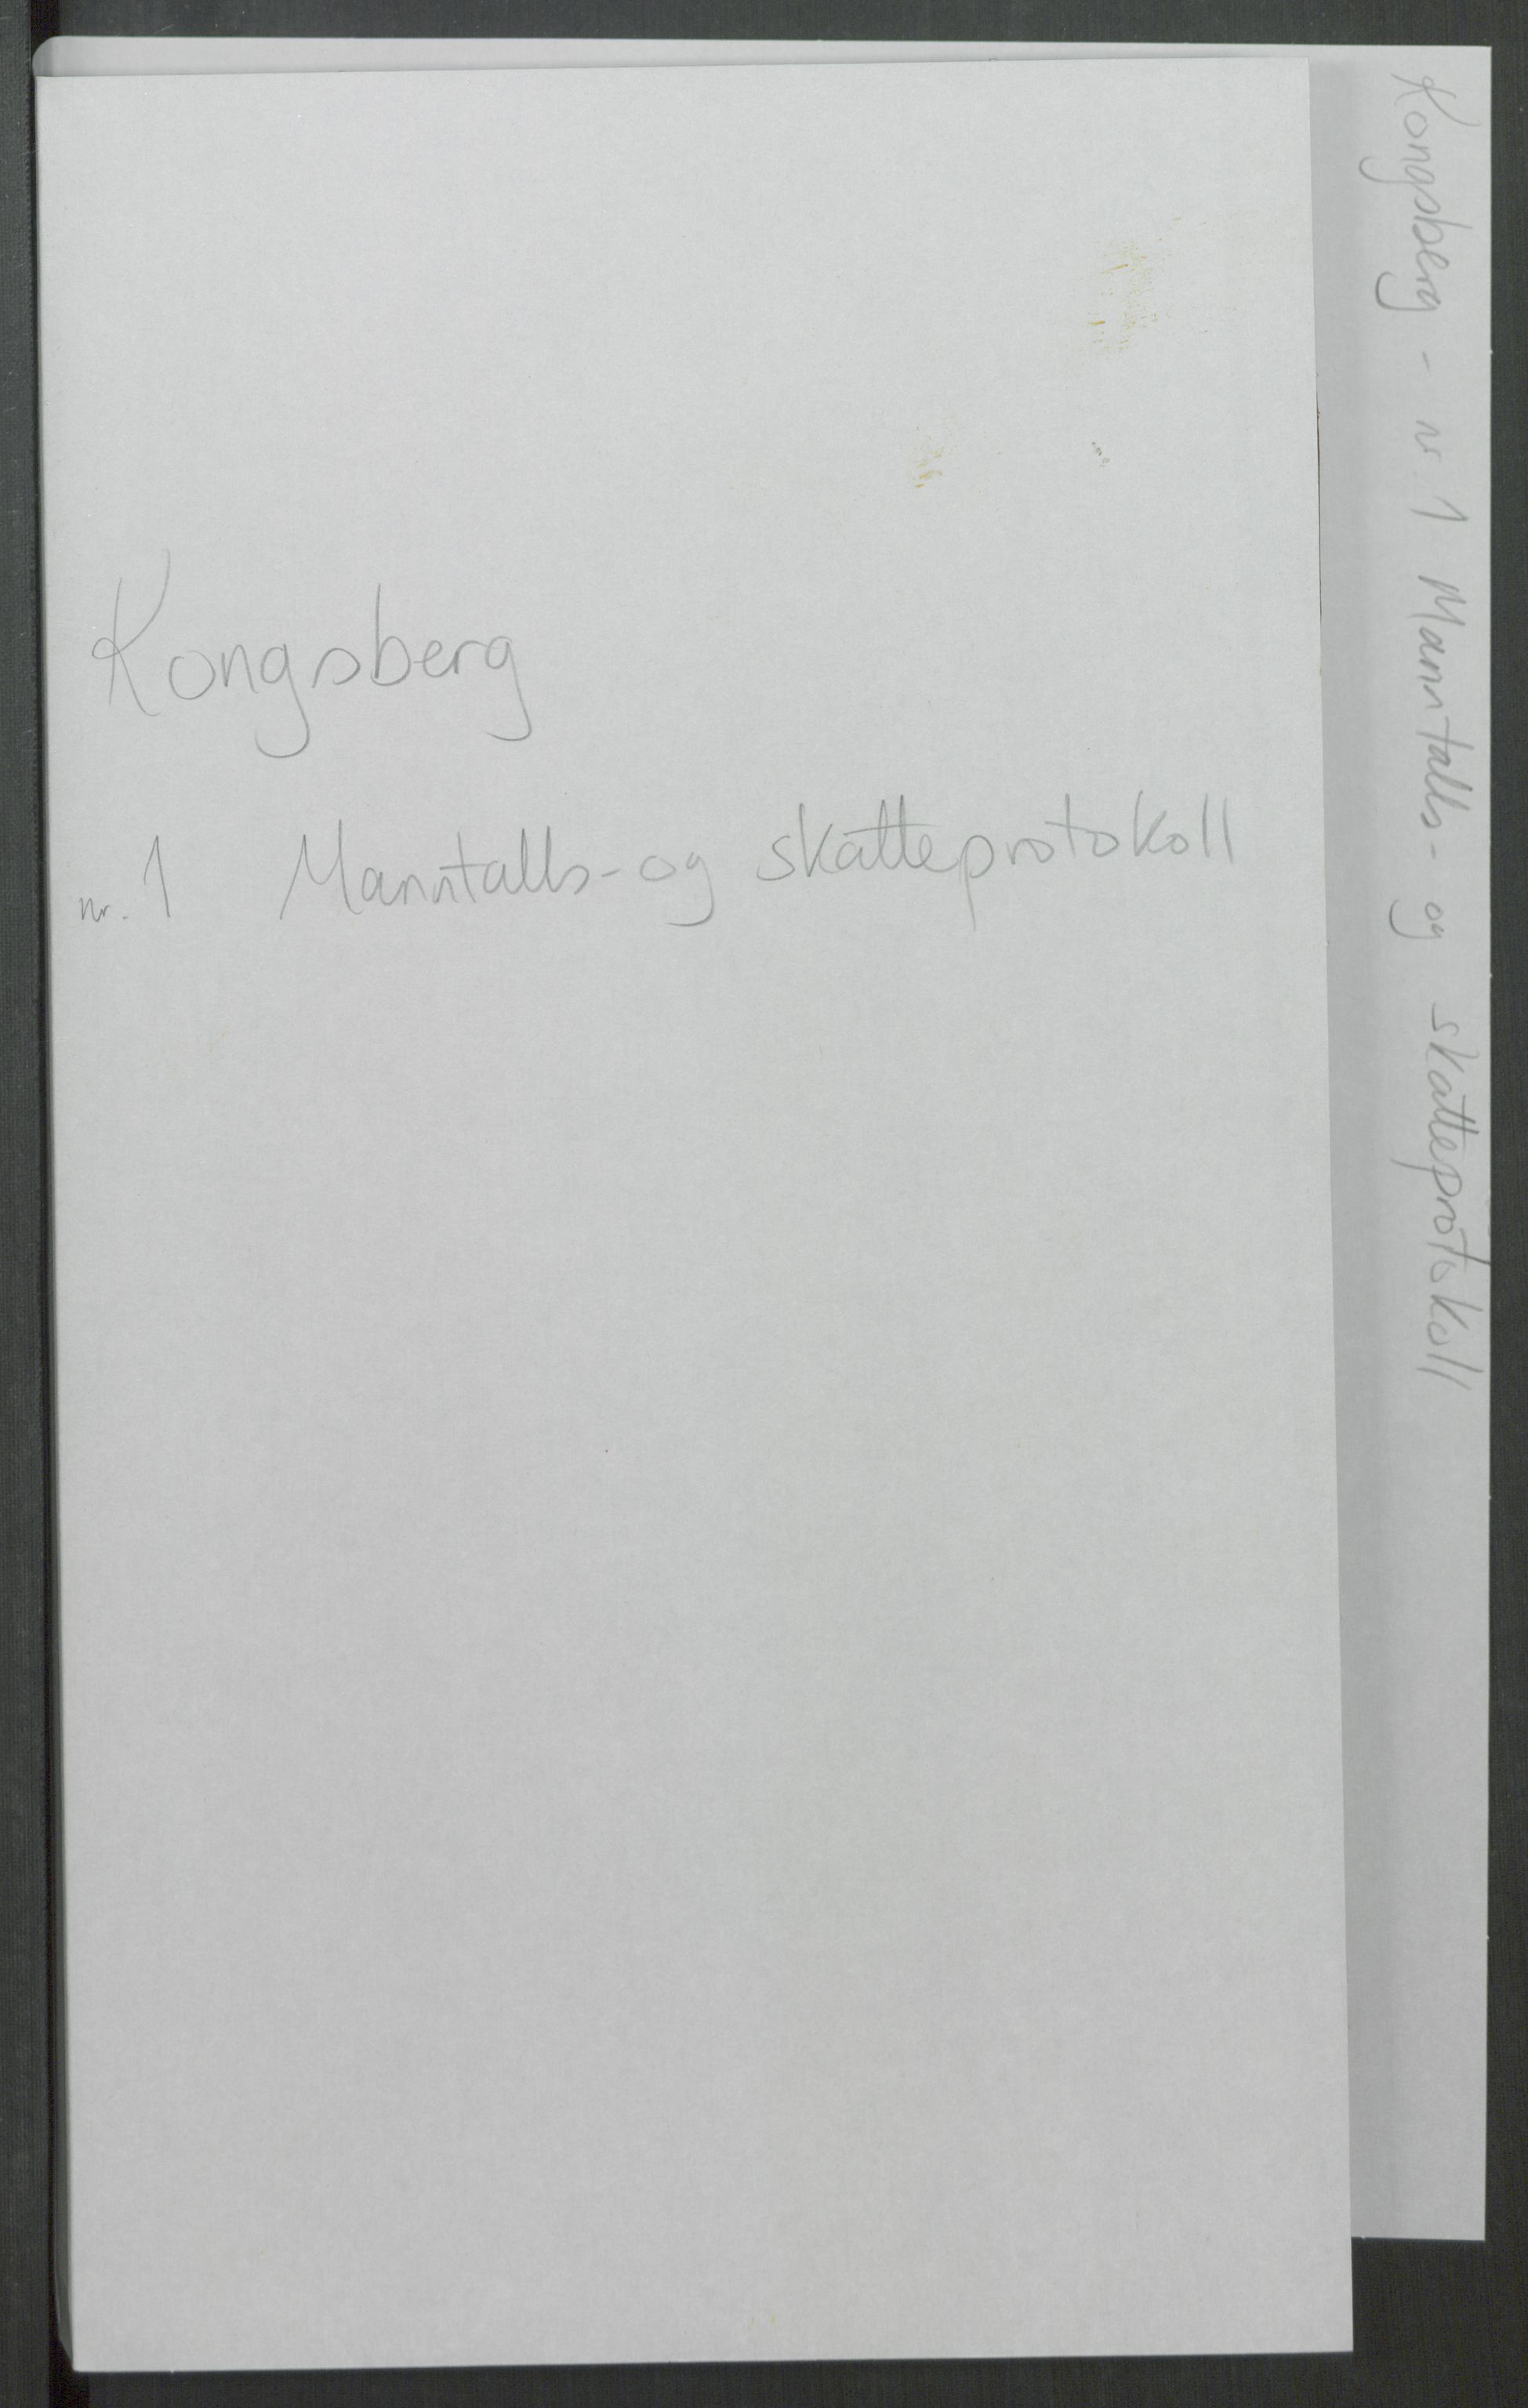 Kongsberg
nr. 1 Manntalls- og skatteprotokoll
Kongsberg - nr. 1 Manntalls- og skatteprotokoll